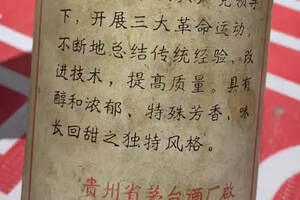 下，开展三大革命运动，
不断地总结传统经验、改
进技术，提高质量。具有
醇和浓郁、特殊芳香、味
长回甜之独特风格。
贵州省茅台酒厂启